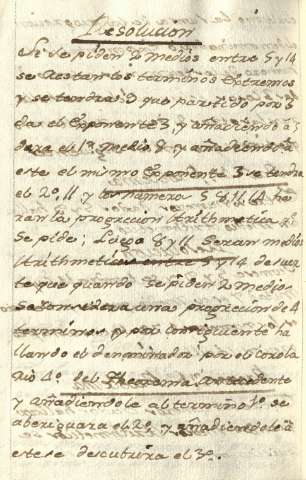 Resolucion
Si se piden 2 medios entre 5 y 14
se Restan los terminos extremos
y se tendra 9 que partido por 3
da el exponente 3, y añadiendo a 5
dara el 1º medio 8 y añadiendo a
este el mismo exponente 3 se tendra
el 2º 11 y los numeros 5 8, 11, 14 ha
ran la progrecion Arithmetica q.
se pide; Luego 8 y 11 seran medios
Arithmeticos entre 5 y 14 de suer
te que quando se piden 2 medios
se considera una progrecion de 4
terminos y por consiguiente ha
llando el denominador por el Corola
rio 4º del Theorema antecedente
y añadiendole al termino 1º se
aberiguara el 2º y añadiendole a
este se descubrira el 3º.